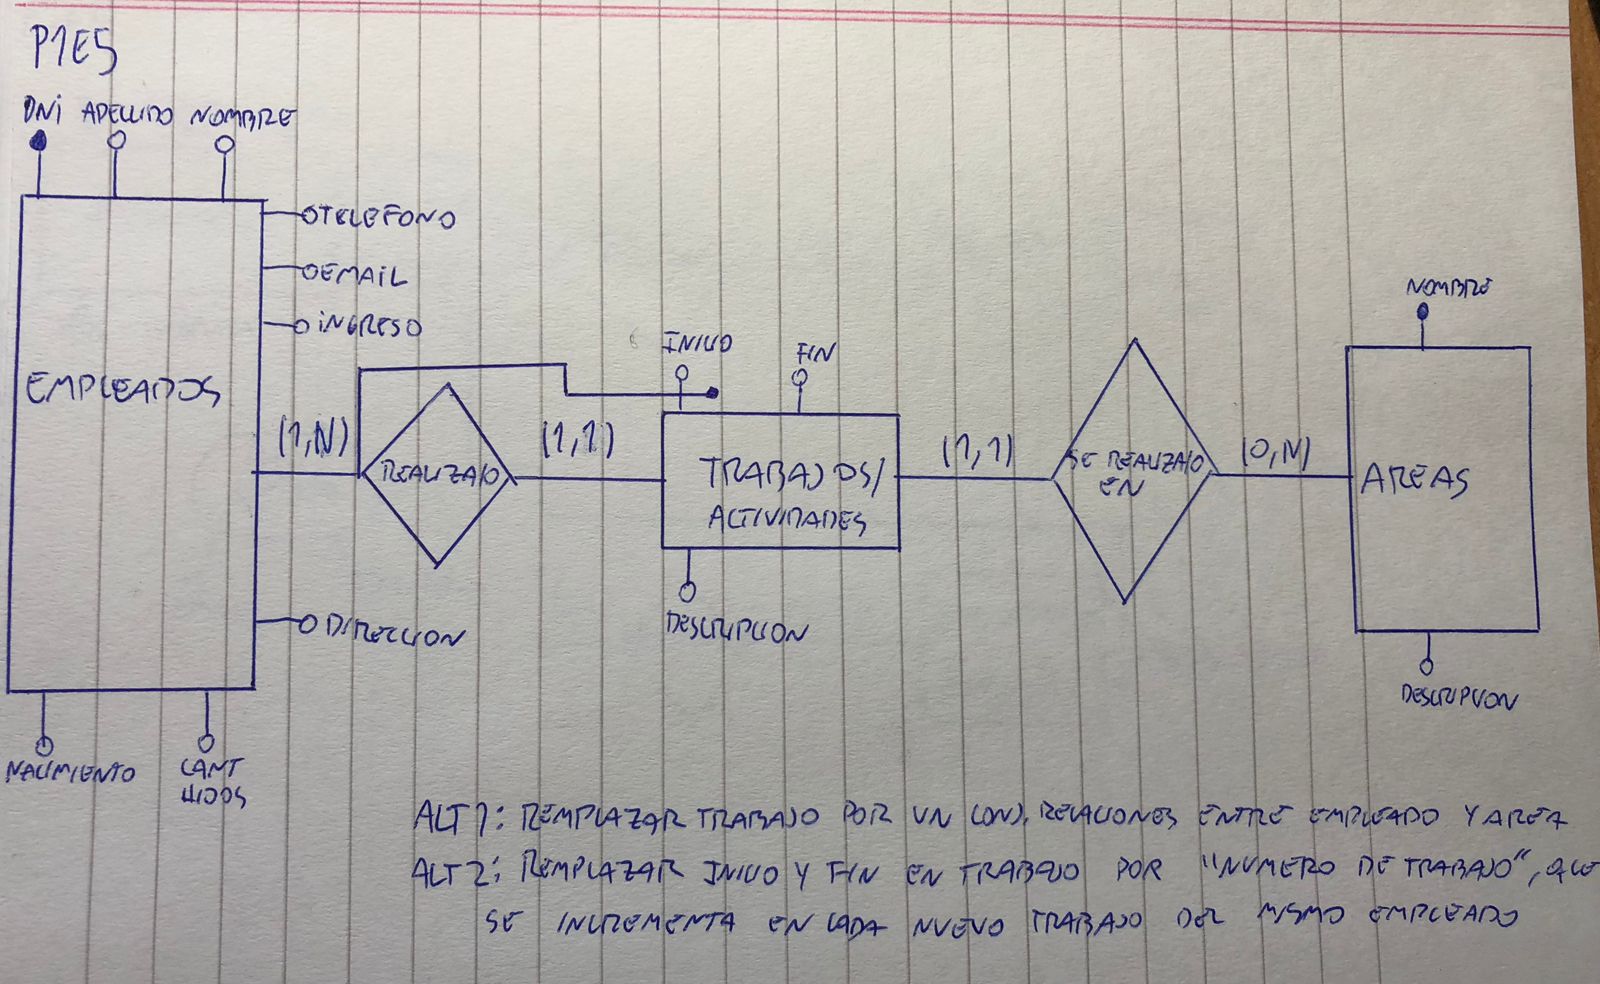 P1E5
DNI APELLIDO NOMBRE
TELEFONO
EMAIL
INGRESO
NOMBRE
INICIO
FIN
EMPLEADOS
(1,N)
(1,1)
(1,1)
(0,N)
REALIZA/O
TRABAJOS/
ACTIVIDADES
SE REALIZA/O
EN
AREAS
DIRECCION
DESCRIPCION
DESCRIPCION
NACIMIENTO
CANT
HIJOS
ALT1: REMPLAZAR TRABAJO POR UN CONJ. RELACIONES ENTRE EMPLEADO Y AREA
ALT2: REMPLAZAR INICIO Y FIN EN TRABAJO POR "NUMERO DE TRABAJO", QUE
SE INCREMENTA EN CADA NUEVO TRABAJO DEL MISMO EMPLEADO